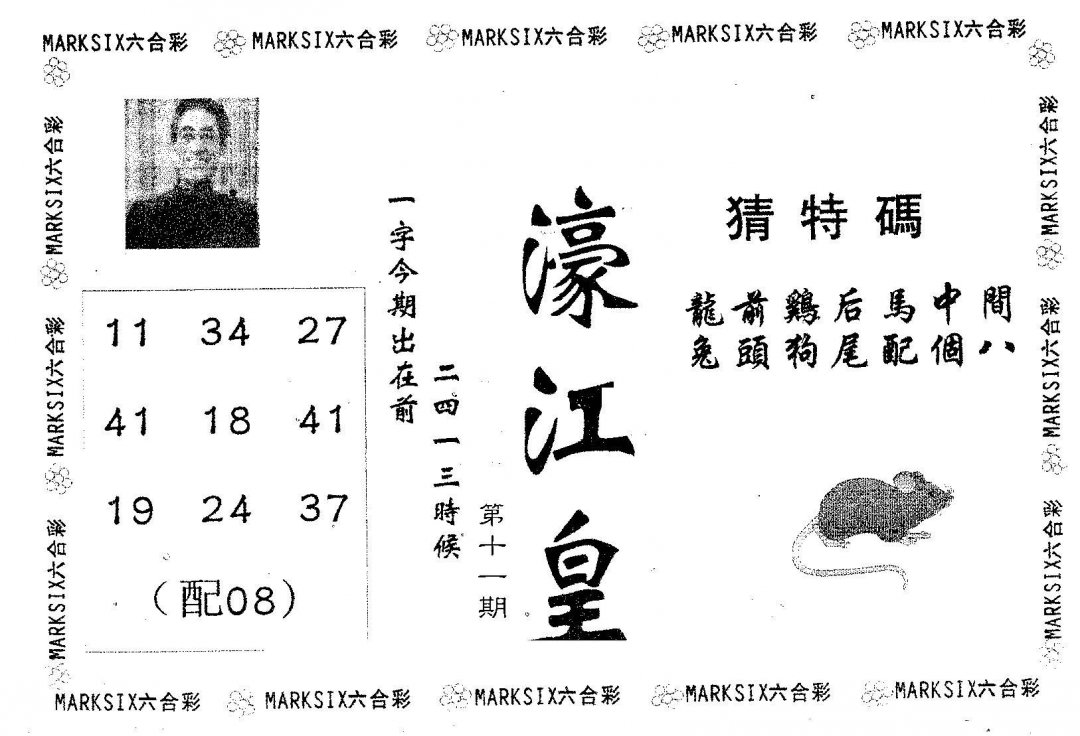 MARKSIX六合彩 MARKSIX六合彩 MARKSIX六合彩 MARKSIX六合彩 MARKSIX六合彩
MARKSIX六合彩
MARKSIX六合彩
MARKSIX六合彩
11 34 27
41 18 41
19 24 37
(配08)
一字今期出在前
二四一三時候
第十一期
濠江皇
猜特碼
龍前鷄后馬中間
兔頭狗尾配個八
MARKSIX六合彩
MARKSIX六合彩
MARKSIX六合彩
MARKSIX六合彩 MARKSIX六合彩 MARKSIX六合彩 MARKSIX六合彩 MARKSIX六合彩